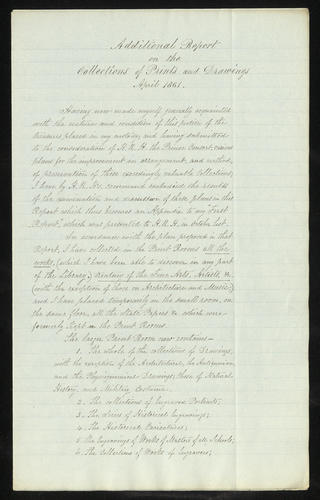 Additional Report
on the
Collections of Prints and Drawings
April 1861.
Having now made myself generally acquainted
with the nature and condition of this portion of the
treasures placed in my custody, and having submitted
to the consideration of H. R. H. the Prince Consort, various
plans for the improvement in arrangement, and method,
of preservation of these exceedingly valuable Collections,
I have by H. R. H's. command embodied the results
of the examination and discussion of these plans in this
Report which thus becomes an Appendix to my "First
Report," which was presented to H. R. H. in October last.
In accordance with the plan proposed in that
Report, I have collected in the Print Rooms all the
works, (which I have been able to discover in any part
of the Library,) treating of the Fine Arts, Artists, &c
(with the exception of those on Architecture and Music)
and I have placed temporarily in the small room, on
the same floor, all the State Papers &c which were
formerly kept in the Print Rooms.
The larger Print Room now contains—
1. The whole of the collections of Drawings,
with the exception of the Architecture, the Antiquarian
and the Physiognomical Drawings, those of Natural
History, and Military Costume.
2. The collections of Engraved Portraits;
3. The series of Historical Engravings;
4. The Historical Caricatures;
5. The Engravings of Works of Masters of all Schools;
6. The Collections of Works of Engravers;